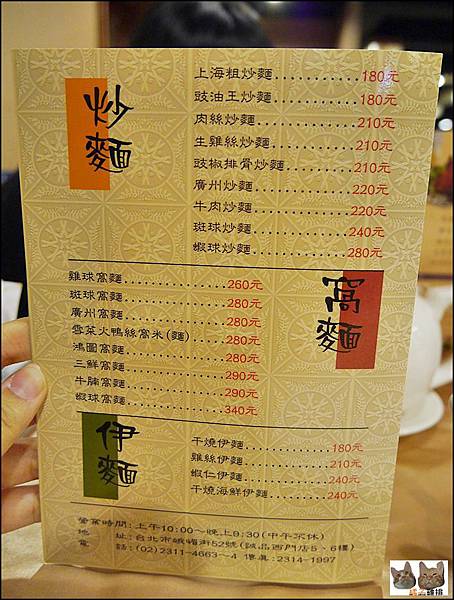 炒麵
上海粗炒麵............180元
豉油王炒麵............180元
肉絲炒麵............210元
生雞絲炒麵............210元
豉椒排骨炒麵............210元
廣州炒麵............220元
牛肉炒麵............220元
斑球炒麵............240元
蝦球炒麵............280元
窩麵
雞球窩麵............260元
斑球窩麵............280元
廣州窩麵............280元
雪菜火鴨絲窩米(麵)......280元
鴻圖窩麵............280元
三鮮窩麵............290元
牛腩窩麵............290元
蝦球窩麵............340元
伊麵
干燒伊麵............180元
雞絲伊麵............210元
蝦仁伊麵............240元
干燒海鮮伊麵............240元
營業時間:上午10:00~晚上9:30(中午不休)
地 址:台北市峨嵋街52號(誠品西門店5、6樓)
電 話:(02)2311-4663~4 傳真:2314-1997